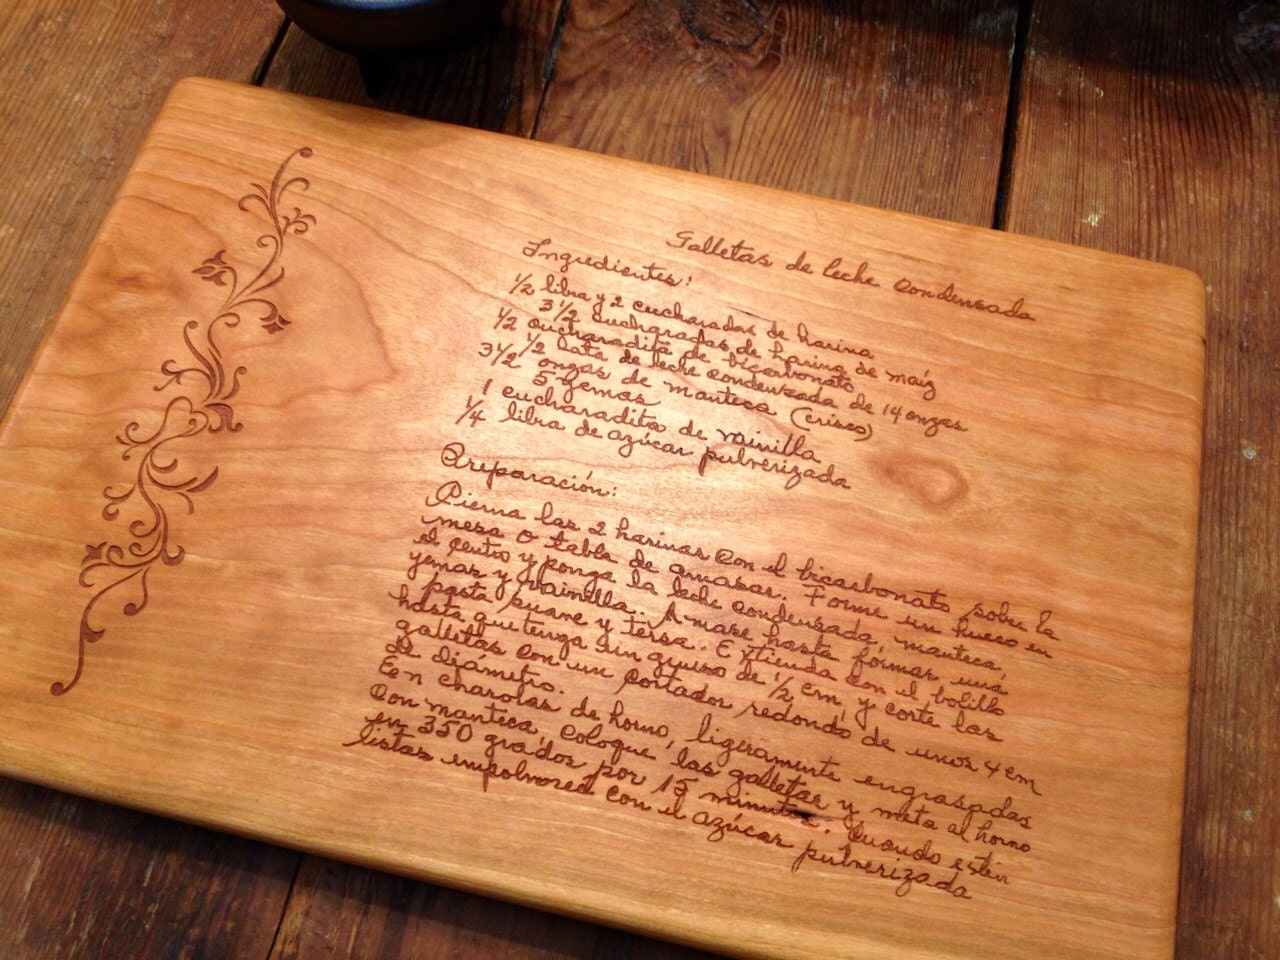 Galletas de leche condensada
Ingredientes:
1/2 libra y 2 cucharadas de harina
3 1/2 cuchgradas de harina de maíz
1/2 cucharadita de bicarbonato
1/2 lata de leche condensada de 14 onzas
3 1/2 onzas de manteca (crisco)
5 yemas
1 cucharadita de vainilla
1/4 libra de azúcar pulverizada
Preparación:
Cierna las 2 harinas con el bicarbonato sobre la
mesa o tabla de amasar. Forme un hueco en
el centro y ponga la leche condensada, manteca,
yemas y vainilla.. Amase hasta formar una
pasta suave y tersa. Extienda con el bolillo
hasta que tenga un grueso de 1/2 cm, y corte las
galletas con un cortador redondo de unos 4 cm
de diametro.
Een charolas de horno, ligeramente engrasadas
con manteca, coloque las galletas y meta al horno
en 350 grados por 15 minutos. Cuando estén
listas empolvored con el azúcar pulverizada